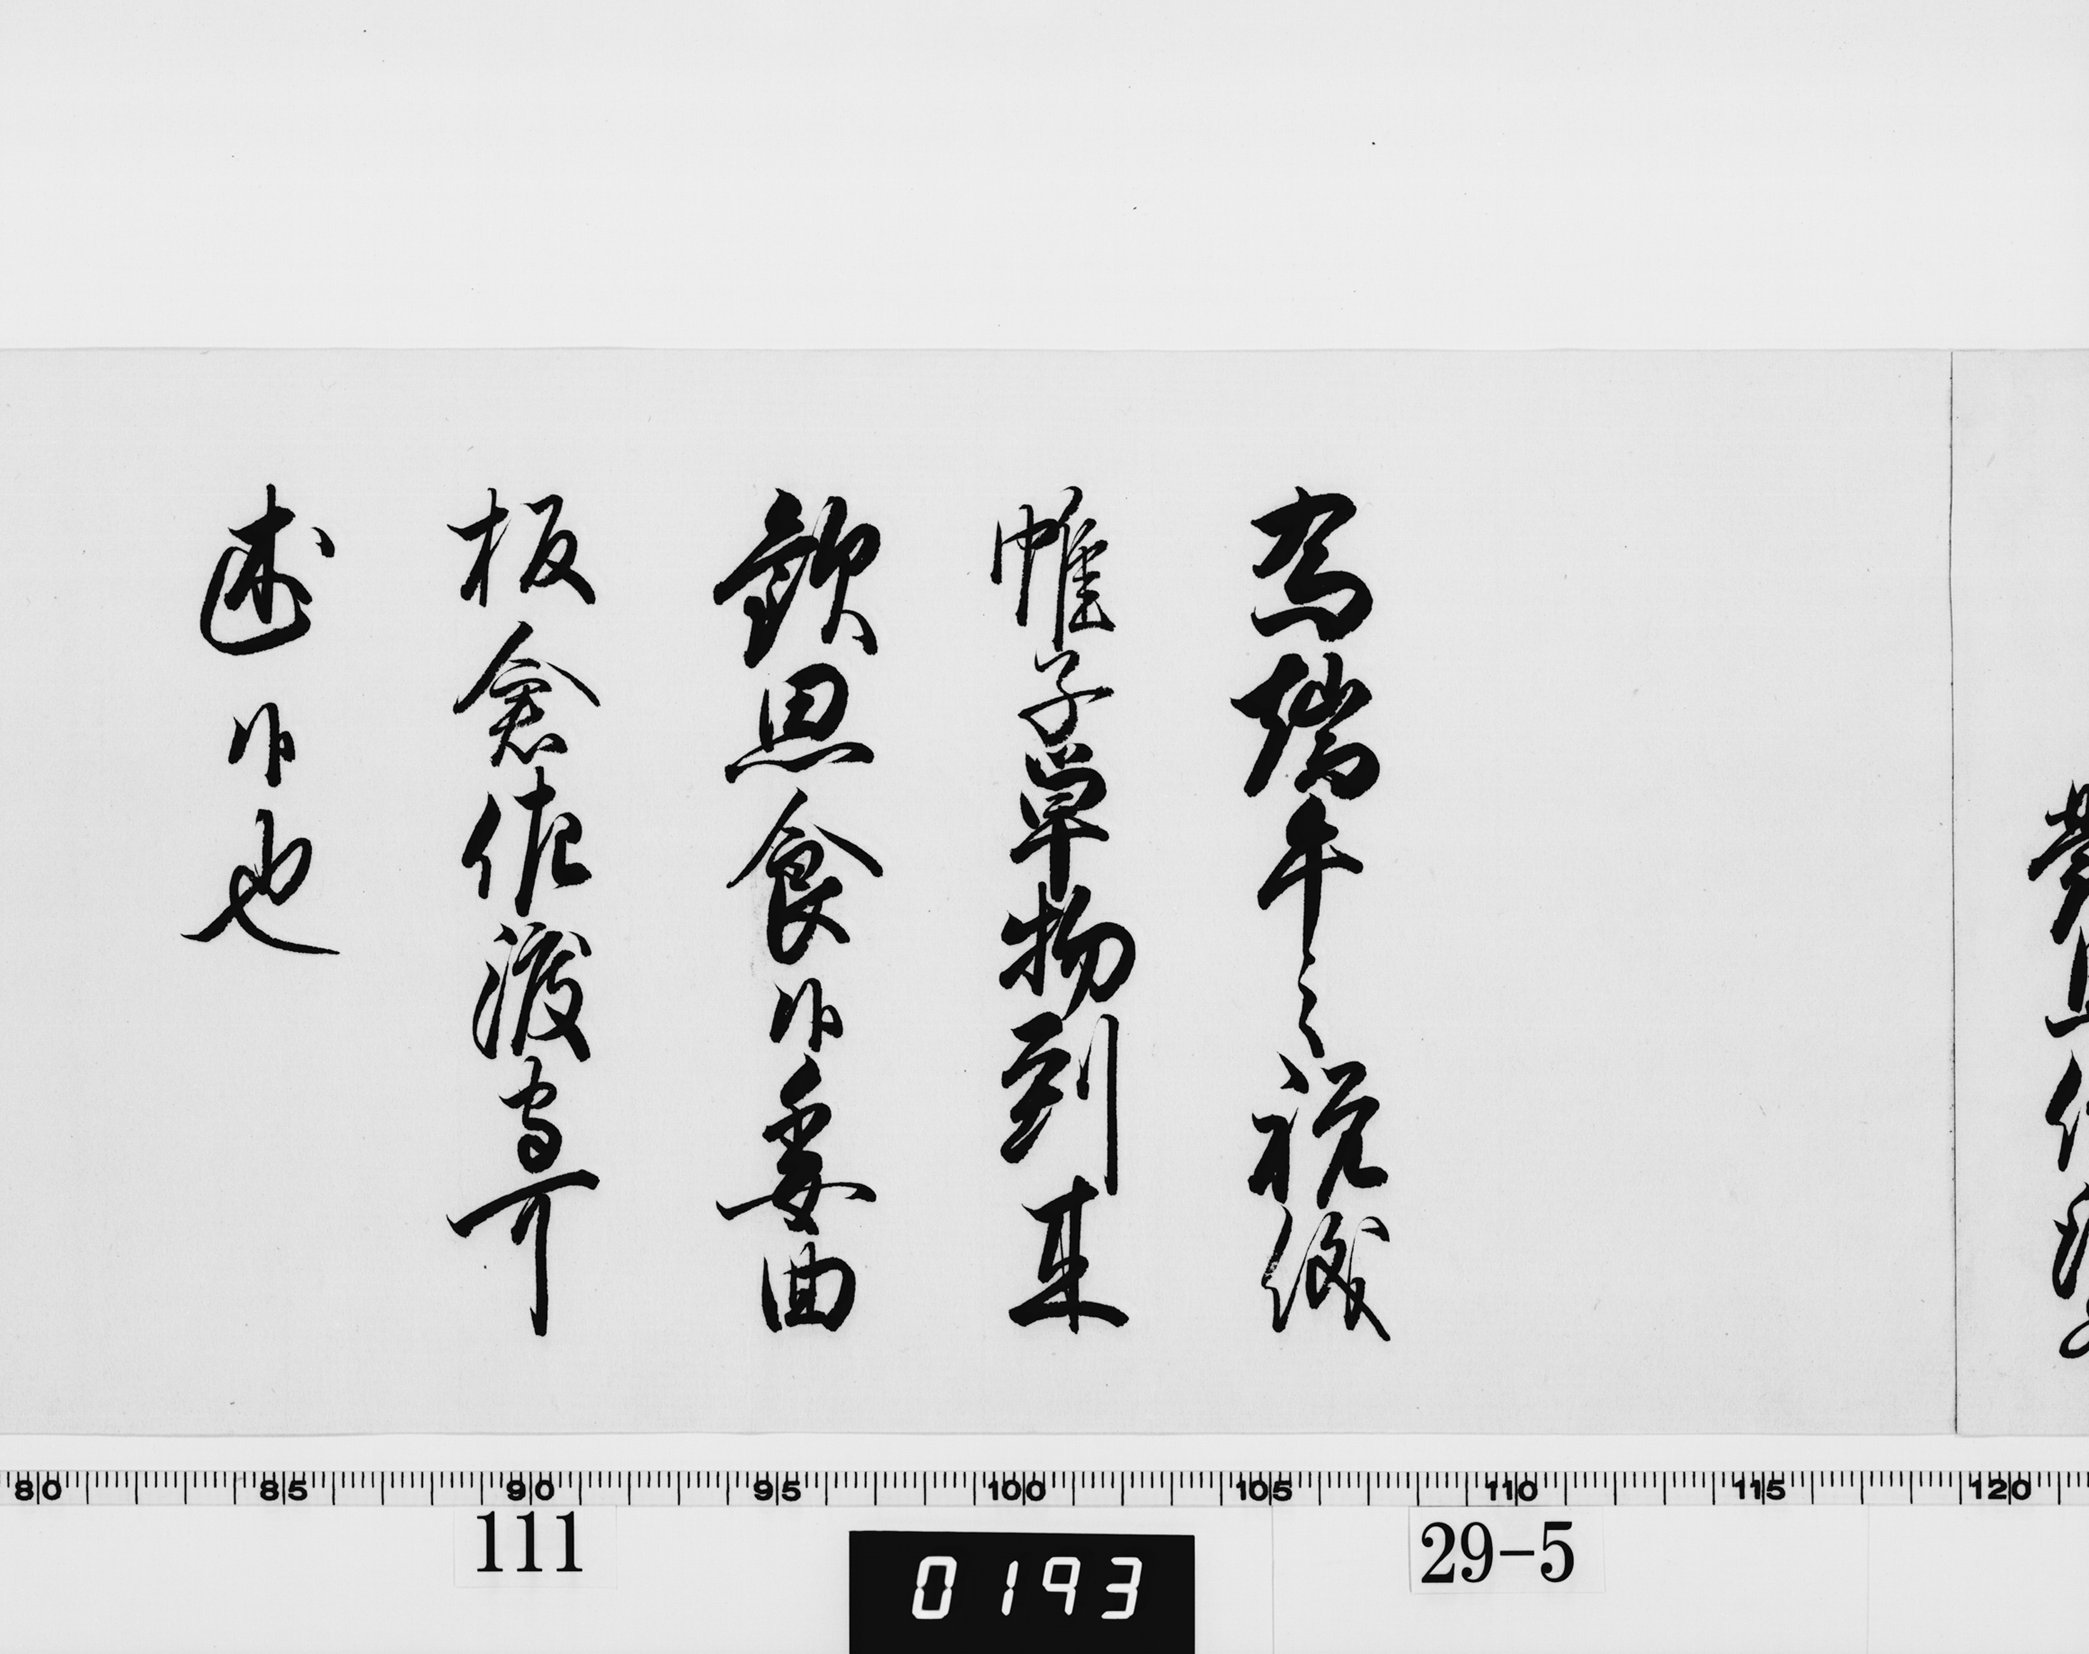 為端午之祝儀
帷子単物到来
歓思食候委曲
板倉佐渡守可
述候也
80 85 90 95 100 105 110 115 120
111
0193
29-5